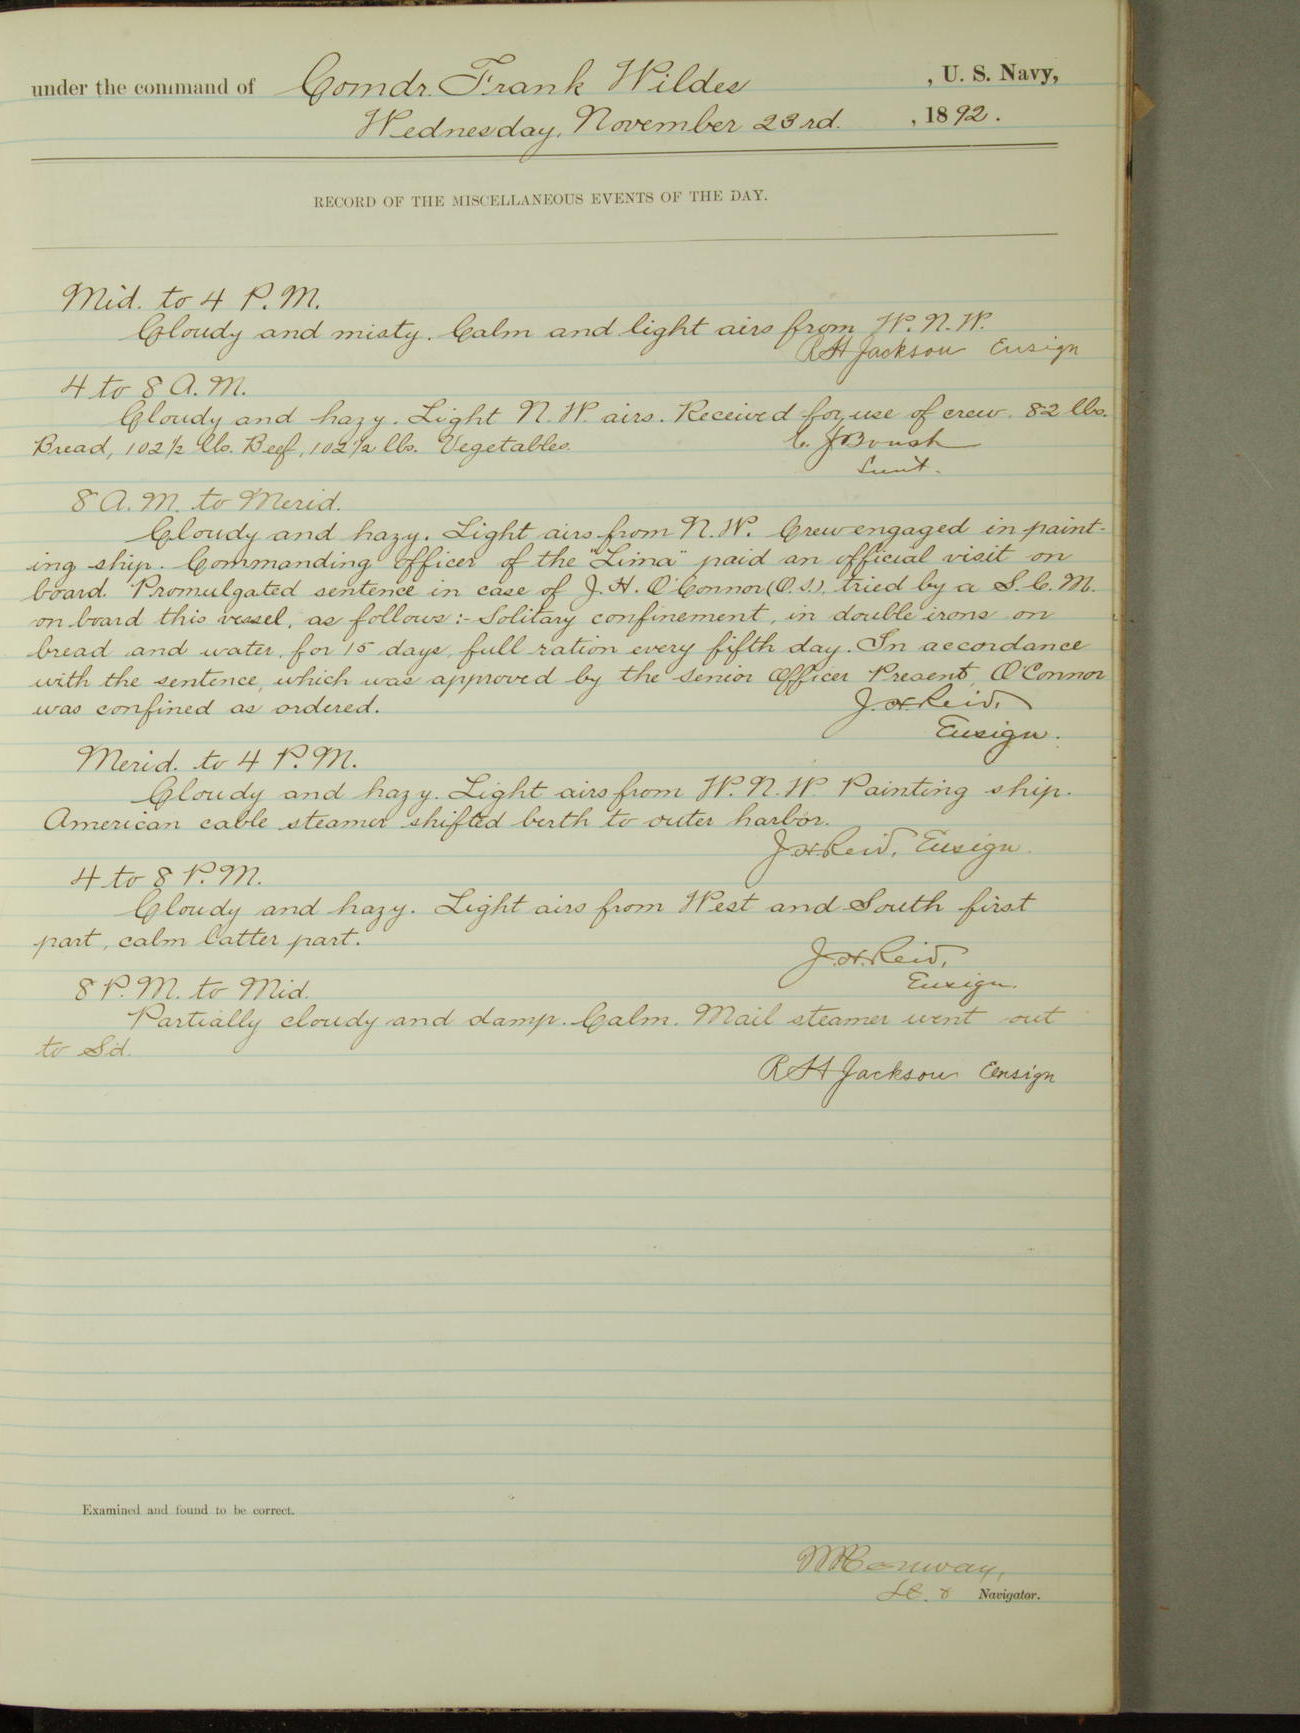 under the command of Comdr. Frank Wildes , U. S. Navy,
Wednesday, November 23rd. , 1892.
RECORD OF THE MISCELLANEOUS EVENTS OF THE DAY.
Mid. to 4 P.M.
Cloudy and misty. Calm and light airs from W.N.W.
R H Jackson Ensign
4 to 8 A.M.
Cloudy and hazy. Light N.W. airs. Received for use of crew. 82 lbs.
Bread, 102½ lbs. Beef, 102½ lbs. Vegetables.
C. J Boush
Lieut.
8 A.M. to Merid.
Cloudy and hazy. Light airs from N.W. Crew engaged in paint-
ing ship. Commanding Officer of the "Lima" paid an official visit on
board. Promulgated sentence in case of J. H. O'Connor (O.S.), tried by a S.C.M.
on board this vessel, as follows:- Solitary confinement, in double irons on
bread and water, for 15 days, full ration every fifth day. In accordance
with the sentence, which was approved by the Senior Officer Present, O'Connor
was confined as ordered.
J. H. Reid,
Ensign.
Merid. to 4 P.M.
Cloudy and hazy. Light airs from W.N.W. Painting ship.
American cable steamer shifted berth to outer harbor.
J. H. Reid, Ensign.
4 to 8 P.M.
Cloudy and hazy. Light airs from West and South first
part, calm latter part.
J. H. Reid,
Ensign.
8 P.M. to Mid.
Partially cloudy and damp. Calm. Mail steamer went out
to Sd.
R H Jackson Ensign
Examined and found to be correct.
Conway,
Lt. & Navigator.